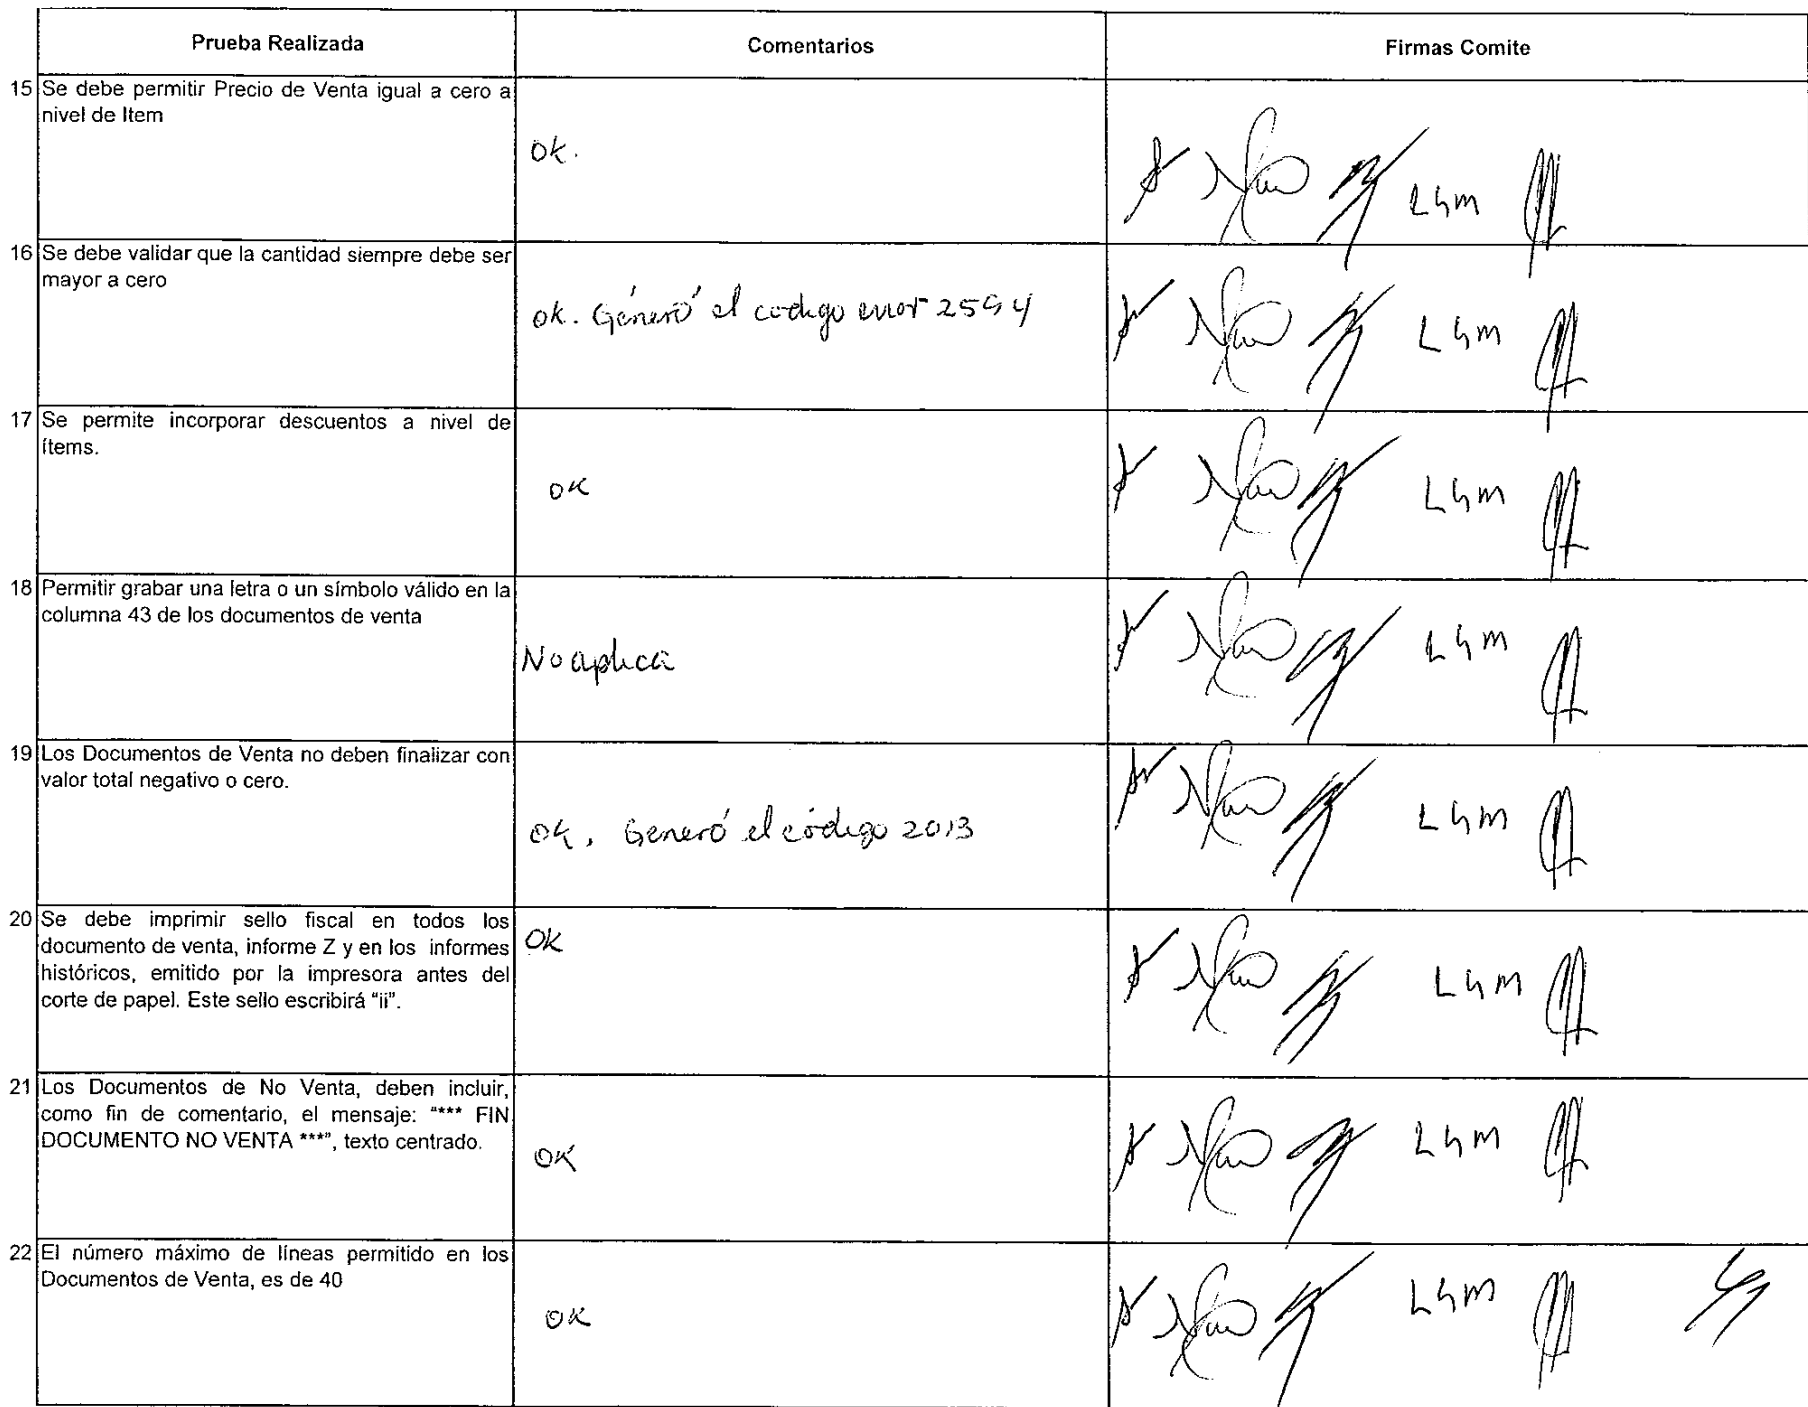 Prueba Realizada Comentarios Firmas Comite
15 Se debe permitir Precio de Venta igual a cero a
nivel de Item
OK.
LGM
16 Se debe validar que la cantidad siempre debe ser
mayor a cero
OK. Géneró el codigo error 2594
LGM
17 Se permite incorporar descuentos a nivel de
ítems.
OK
LGM
18 Permitir grabar una letra o un símbolo válido en la
columna 43 de los documentos de venta
No aplica
LGM
19 Los Documentos de Venta no deben finalizar con
valor total negativo o cero.
OK, Generó el código 2013
LGM
20 Se debe imprimir sello fiscal en todos los
documento de venta, informe Z y en los informes
históricos, emitido por la impresora antes del
corte de papel. Este sello escribirá "ii".
OK
LGM
21 Los Documentos de No Venta, deben incluir,
como fin de comentario, el mensaje: "*** FIN
DOCUMENTO NO VENTA ***", texto centrado.
OK
LGM
22 El número máximo de líneas permitido en los
Documentos de Venta, es de 40
OK
LGM